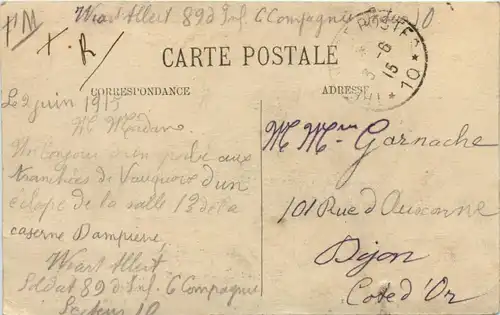 FM Wiart Albert 89 d'Inf. 6 Compagnie Secteur 10
+ R
CARTE POSTALE
POSTES
10
8-6
15
CORRESPONDANCE
ADRESSE
Le 2 juin 1915
M Madame
Un bonjour d'un poilu aux
tranchées de Vauquois d'un
éclopé de la salle 13 de la
caserne Dampierre,
Wiart Albert
Soldat 89 d'Inf. 6 Compagnie
Secteur 10
M Mme Garnache
101 Rue d'Auxonne
Dijon
Cote d'Or